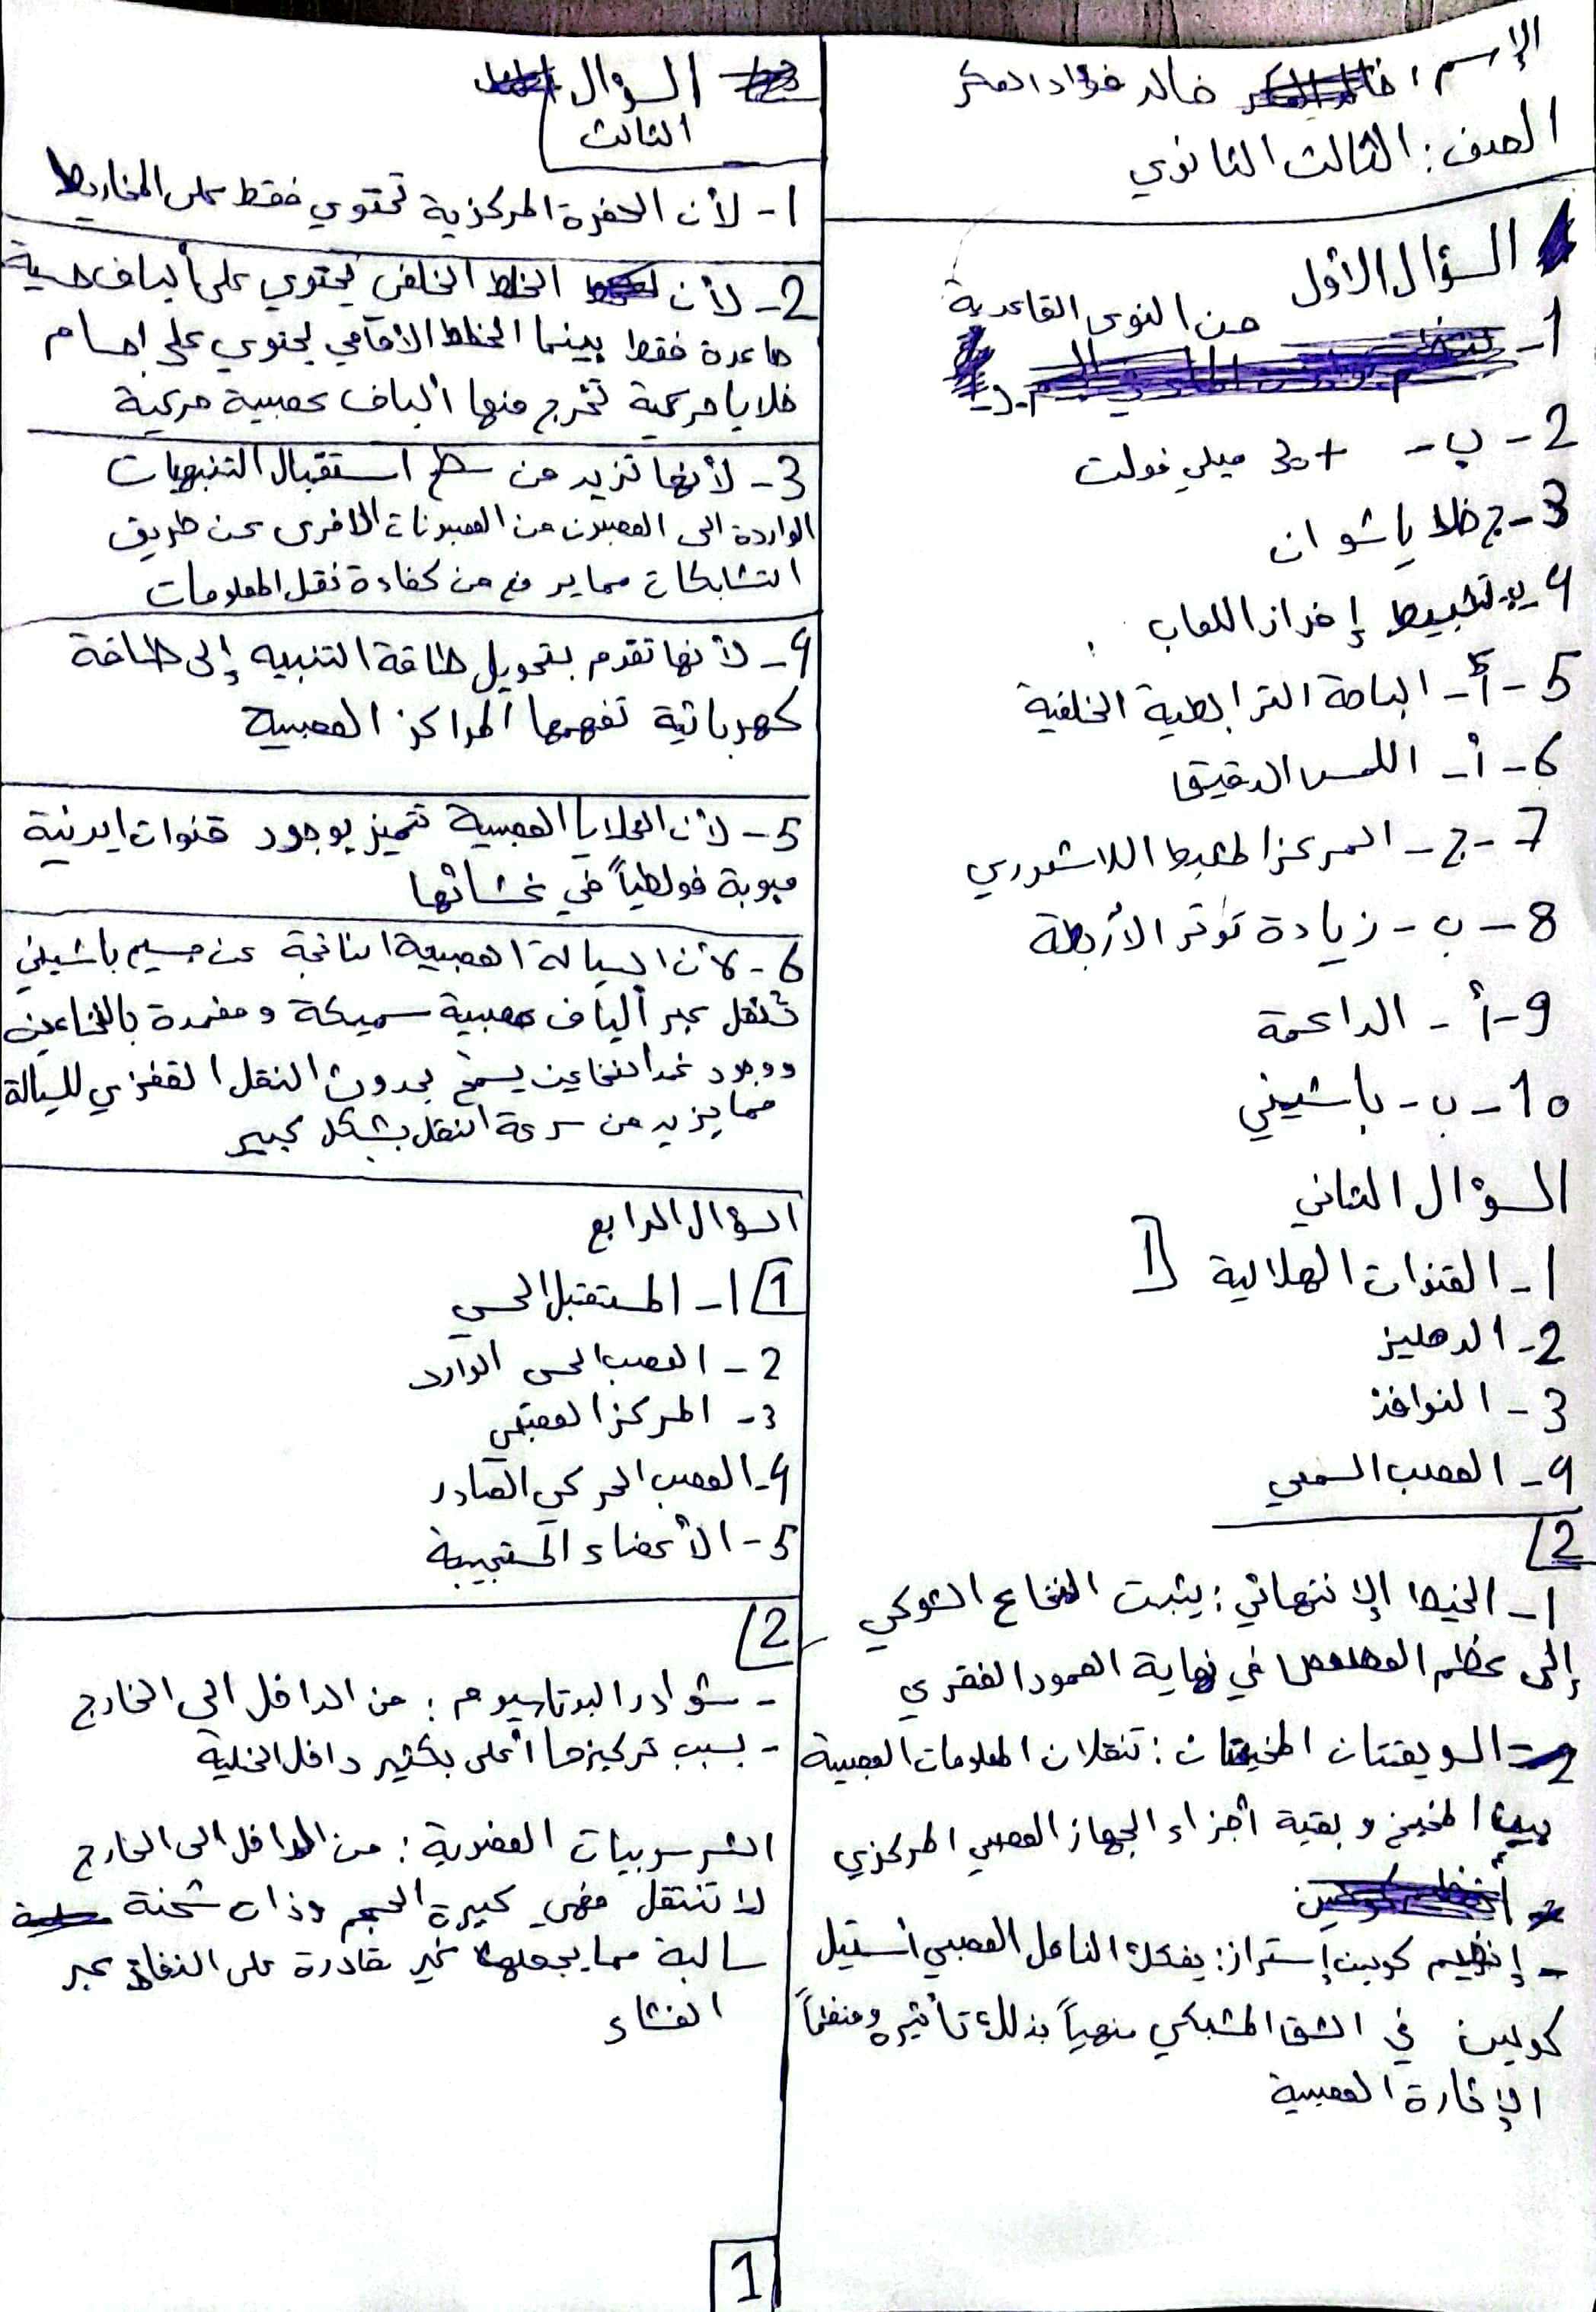 الإسم: خالد فؤاد العكر
الصف: الثالث الثانوي
السؤال الأول
1- من النوى القاعدية
2- ب- +30 ميلي فولت
3- ج خلايا شوان
4- تثبيط إفراز اللعاب
5- أ- الباحة الترابطية الخلفية
6- أ- اللمس الدقيق
7- ج- المركز المثبط اللاشعوري
8- ب- زيادة توتر الأربطة
9- أ- الداعمة
10- ب- باشيني
السؤال الثاني
1- القنوات الهلالية [1
2- الدهليز
3- النوافذ
4- العصب السمعي
[2
1- الخيط الإنتهائي: يثبت النخاع الشوكي
إلى عظم العصعص في نهاية العمود الفقري
2- السويقتان المخيختان: تنقلان المعلومات العصبية
بين المخيخ و بقية أجزاء الجهاز العصبي المركزي
- إنظيم كولين إستراز: يفكك الناقل العصبي أستيل
كولين في الشق المشبكي منهياً بذلك تأثيره ومنظماً
الإشارة العصبية
السؤال
الثالث
1- لأن الحفرة المركزية تحتوي فقط على المخاريط
2- لأن الخلط الخلفي يحتوي على ألياف حسية
صاعدة فقط بينما الخلط الأمامي يحتوي على اجسام
خلايا حركية تخرج منها ألياف عصبية حركية
3- لأنها تزيد من سطح استقبال التنبيهات
الواردة الى العصبون من العصبونات الاخرى عن طريق
التشابكات مما يرفع من كفاءة نقل المعلومات
4- لأنها تقدم بتحويل طاقة التنبيه إلى طاقة
كهربائية تفهمها المراكز العصبية
5- لأن الخلايا العصبية تتميز بوجود قنوات ايونية
مبوبة فولطياً في غشائها
6- لأن السيالة العصبية الناتجة عن جسيم باشيني
تنتقل عبر ألياف عصبية سميكة و مغمدة بالنخاعين
ووجود غمد النخاعين يسمح بحدوث النقل القفزي للسيالة
مما يزيد من سرعة النقل بشكل كبير
السؤال الرابع
1] 1- المستقبل الحسي
2- العصب الحسي الوارد
3- المركز العصبي
4- العصب الحركي الصادر
5- الأعضاء المستجيبة
2]
- شوادر البوتاسيوم: من الداخل الى الخارج
- بسبب تركيزها أعلى بكثير داخل الخلية
الشرسبيات العضوية: من الداخل الى الخارج
لا تنتقل فهي كبيرة الحجم وذات شحنة
سالبة مما يجعلها غير قادرة على النفاذ عبر
الغشاء
1